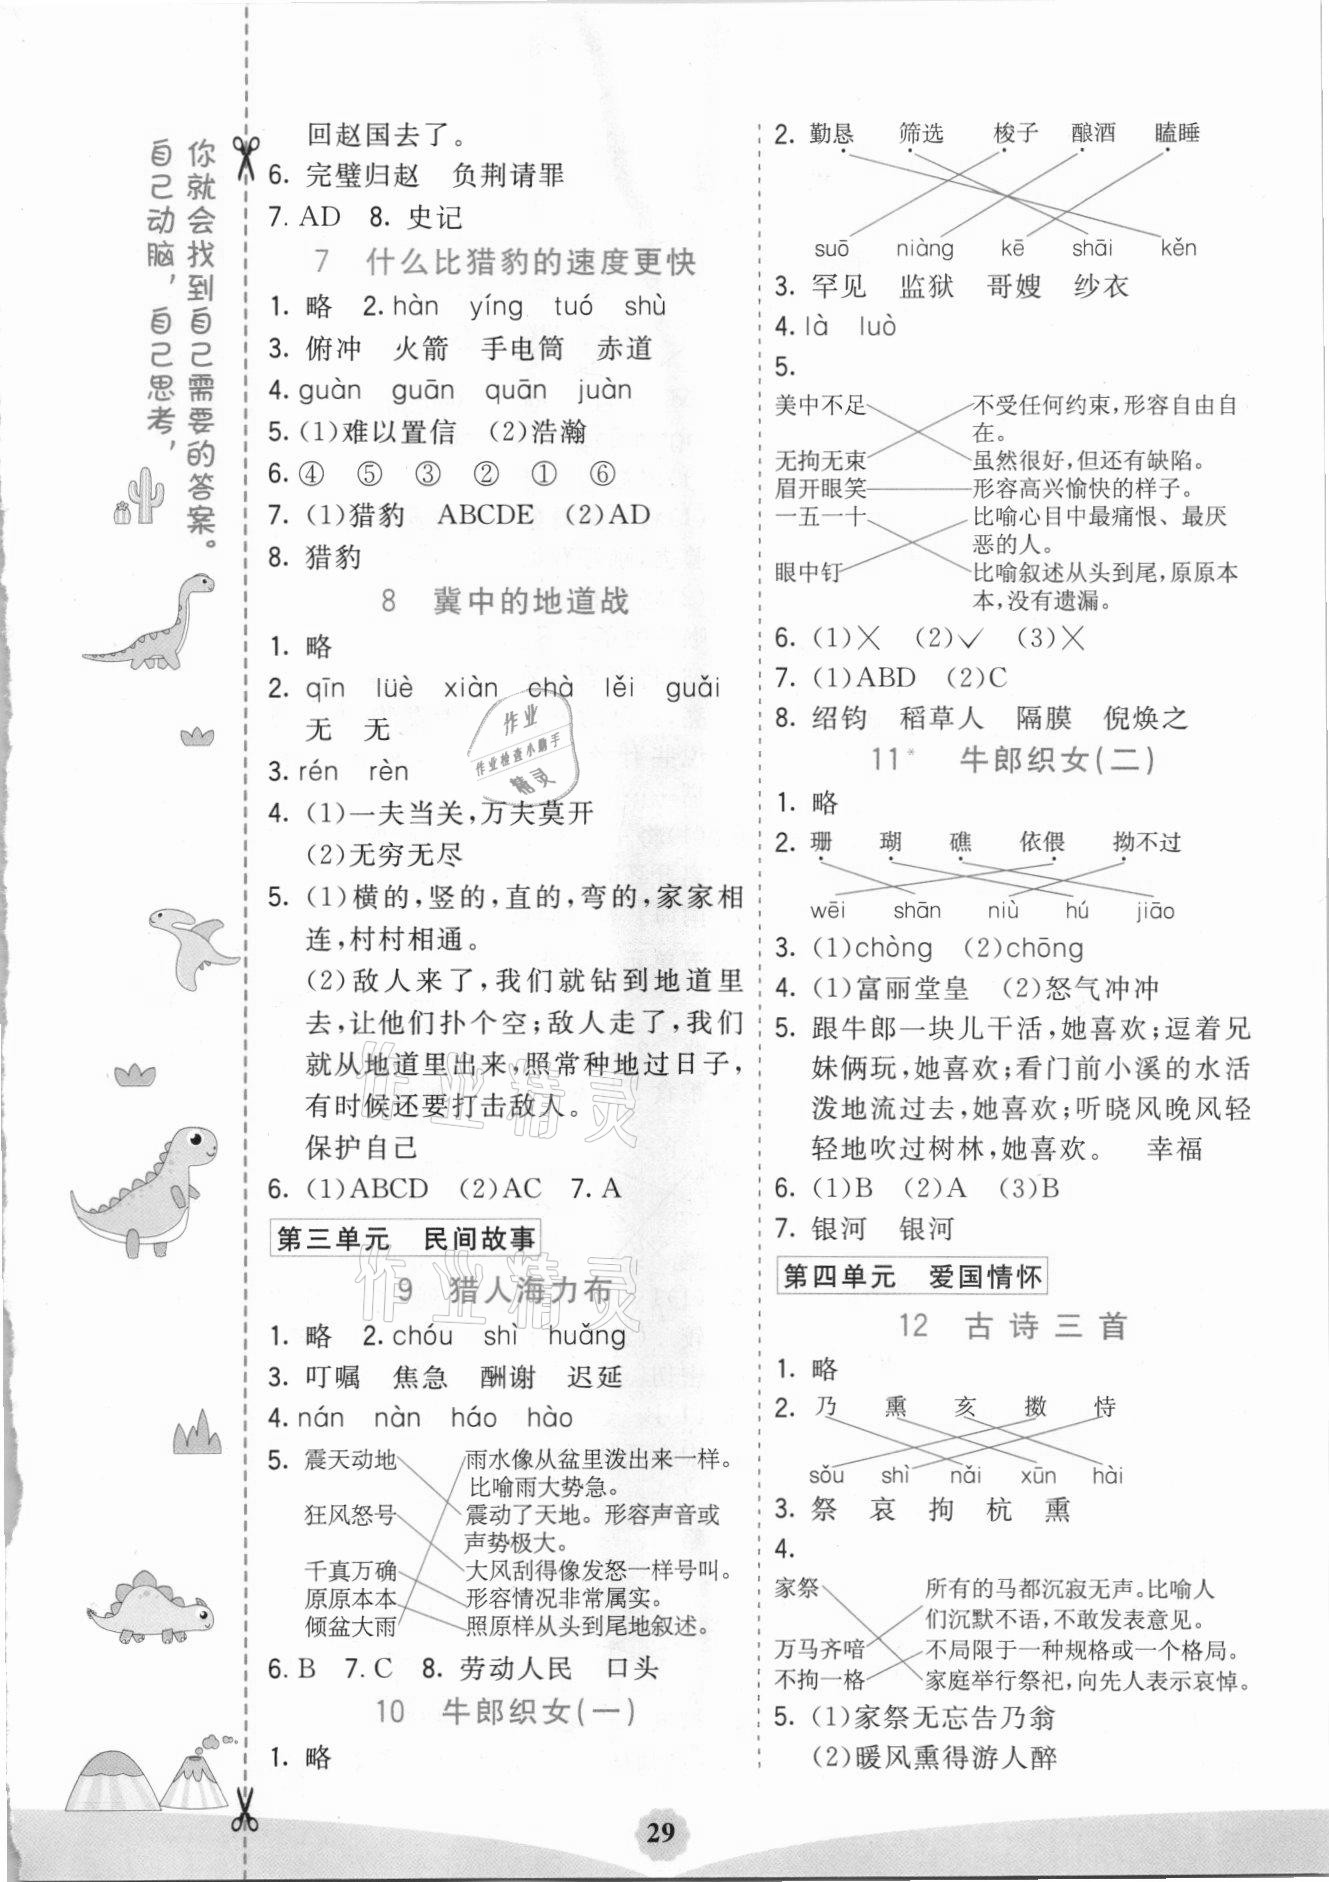 你就会找到自己需要的答案。
自己动脑，自己思考，
回赵国去了。
6. 完璧归赵 负荆请罪
7. AD 8. 史记
7 什么比猎豹的速度更快
1. 略 2. hàn yíng tuó shù
3. 俯冲 火箭 手电筒 赤道
4. guàn guān quān juàn
5. (1)难以置信 (2)浩瀚
6. ④ ⑤ ③ ② ① ⑥
7. (1)猎豹 ABCDE (2)AD
8. 猎豹
8 冀中的地道战
1. 略
2. qīn lüè xiàn chà lěi guǎi
无 无
3. rén rèn
4. (1)一夫当关,万夫莫开
(2)无穷无尽
5. (1)横的,竖的,直的,弯的,家家相
连,村村相通。
(2)敌人来了,我们就钻到地道里
去,让他们扑个空;敌人走了,我们
就从地道里出来,照常种地过日子,
有时候还要打击敌人。
保护自己
6. (1)ABCD (2)AC 7. A
第三单元 民间故事
9 猎人海力布
1. 略 2. chóu shì huǎng
3. 叮嘱 焦急 酬谢 迟延
4. nán nàn háo hào
5. 震天动地 雨水像从盆里泼出来一样。
比喻雨大势急。
狂风怒号 震动了天地。形容声音或
声势极大。
千真万确 大风刮得像发怒一样号叫。
原原本本 形容情况非常属实。
倾盆大雨 照原样从头到尾地叙述。
6. B 7. C 8. 劳动人民 口头
10 牛郎织女(一)
1. 略
2. 勤恳 筛选 梭子 酿酒 瞌睡
suō niàng kē shāi kěn
3. 罕见 监狱 哥嫂 纱衣
4. là luò
5.
美中不足 不受任何约束,形容自由自
在。
无拘无束 虽然很好,但还有缺陷。
眉开眼笑 形容高兴愉快的样子。
一五一十 比喻心目中最痛恨、最厌
恶的人。
眼中钉 比喻叙述从头到尾,原原本
本,没有遗漏。
6. (1)╳ (2)✓ (3)╳
7. (1)ABD (2)C
8. 绍钧 稻草人 隔膜 倪焕之
11* 牛郎织女(二)
1. 略
2. 珊 瑚 礁 依偎 拗不过
wēi shān niù hú jiāo
3. (1)chòng (2)chōng
4. (1)富丽堂皇 (2)怒气冲冲
5. 跟牛郎一块儿干活,她喜欢;逗着兄
妹俩玩,她喜欢;看门前小溪的水活
泼地流过去,她喜欢;听晓风晚风轻
轻地吹过树林,她喜欢。 幸福
6. (1)B (2)A (3)B
7. 银河 银河
第四单元 爱国情怀
12 古诗三首
1. 略
2. 乃 熏 亥 擞 恃
sǒu shì nǎi xūn hài
3. 祭 哀 拘 杭 熏
4.
家祭 所有的马都沉寂无声。比喻人
们沉默不语,不敢发表意见。
万马齐喑 不局限于一种规格或一个格局。
不拘一格 家庭举行祭祀,向先人表示哀悼。
5. (1)家祭无忘告乃翁
(2)暖风熏得游人醉
作业
作业检查小助手
精灵
作业精灵
作业精灵
29